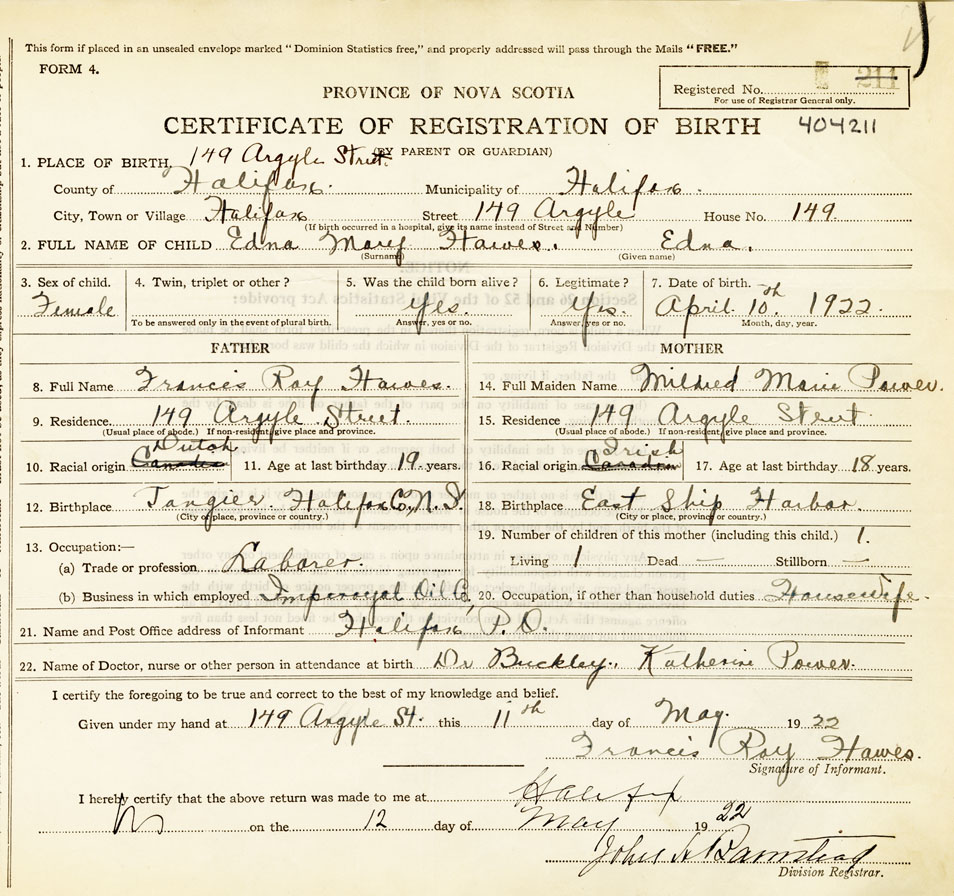 This form if placed in an unsealed envelope marked "Dominion Statistics free," and properly addressed will pass through the Mails "FREE."
FORM 4.
Registered No. 211
For use of Registrar General only.
PROVINCE OF NOVA SCOTIA
CERTIFICATE OF REGISTRATION OF BIRTH 404211
(BY PARENT OR GUARDIAN)
1. PLACE OF BIRTH, 149 Argyle Street.
County of Halifax. Municipality of Halifax.
City, Town or Village Halifax Street 149 Argyle House No. 149
(If birth occurred in a hospital, give its name instead of Street and Number)
2. FULL NAME OF CHILD Edna Mary Hawes. Edna.
(Surname) (Given name)
3. Sex of child. 4. Twin, triplet or other? 5. Was the child born alive? 6. Legitimate? 7. Date of birth.
Female Yes. Yes. April 10th 1922
To be answered only in the event of plural birth. Answer, yes or no. Answer, yes or no. Month, day, year.
FATHER MOTHER
8. Full Name Francis Roy Hawes. 14. Full Maiden Name Mildred Marie Power.
9. Residence 149 Argyle Street. 15. Residence 149 Argyle Street
(Usual place of abode.) If non-resident, give place and province. (Usual place of abode.) If non-resident, give place and province.
Dutch Irish
10. Racial origin Canadian 11. Age at last birthday 19 years. 16. Racial origin Canadian 17. Age at last birthday 18 years.
12. Birthplace Tangier Halifax Co. N.S. 18. Birthplace East Ship Harbor.
(City or place, province or country.) (City or place, province or country.)
13. Occupation:— 19. Number of children of this mother (including this child.) 1.
(a) Trade or profession Laborer. Living 1 Dead — Stillborn —
(b) Business in which employed Imperoyal Oil Co, 20. Occupation, if other than household duties Housewife.
21. Name and Post Office address of Informant Halifax P.O.
22. Name of Doctor, nurse or other person in attendance at birth Dr Buckley. Katherine Power.
I certify the foregoing to be true and correct to the best of my knowledge and belief.
Given under my hand at 149 Argyle St. this 11th day of May. 1922
Francis Roy Hawes.
Signature of Informant.
I hereby certify that the above return was made to me at Halifax
NS on the 12 day of May 1922
John A
Division Registrar.